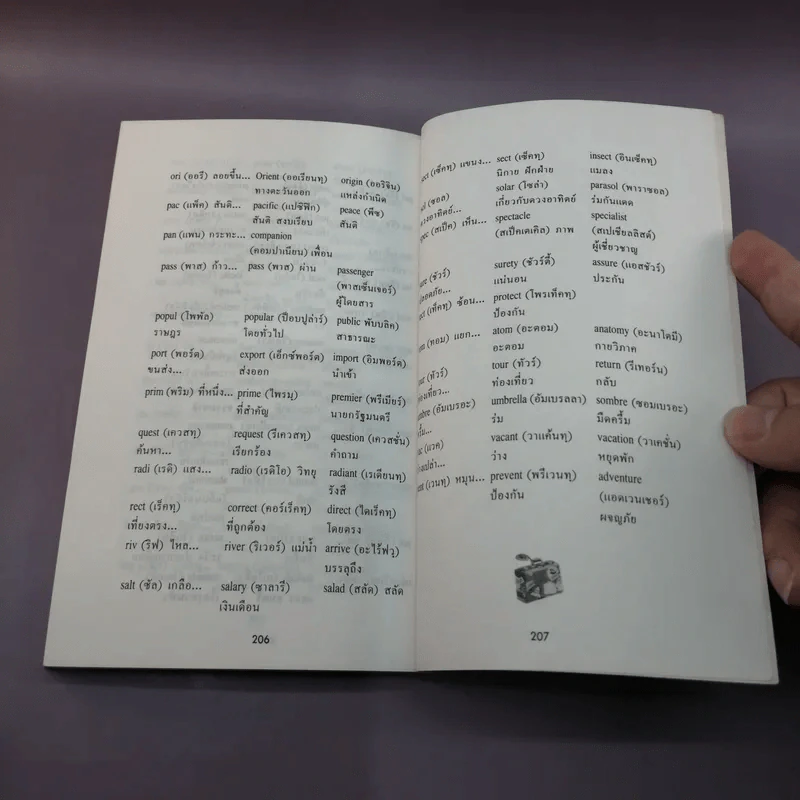 ori (ออรี) ลอยขึ้น... Orient (ออเรียนทฺ) origin (ออริจิน)
ทางตะวันออก แหล่งกำเนิด
pac (แพ็ค) สันติ... pacific (แปซิฟิก) peace (พีซ)
สันติ สงบเรียบ สันติ
pan (แพน) กระทะ... companion
(คอมปาเนียน) เพื่อน
pass (พาส) ก้าว... pass (พาส) ผ่าน passenger
(พาสเซ็นเจอร์)
ผู้โดยสาร
popul (ไพพัล) popular (ป๊อบปูล่าร์) public พับบลิค)
ราษฎร โดยทั่วไป สาธารณะ
port (พอร์ต) export (เอ็กซ์พอร์ต) import (อิมพอร์ต)
ขนส่ง... ส่งออก นำเข้า
prim (พริม) ที่หนึ่ง... prime (ไพรมฺ) premier (พรีเมียร์)
ที่สำคัญ นายกรัฐมนตรี
quest (เควสทฺ) request (รีเควสทฺ) question (เควสชั่น)
ค้นหา... เรียกร้อง คำถาม
radi (เรดิ) แสง... radio (เรดิโอ) วิทยุ radiant (เรเดียนทฺ)
รังสี
rect (เร็คทฺ) correct (คอร์เร็คทฺ) direct (ไดเร็คทฺ)
เที่ยงตรง... ที่ถูกต้อง โดยตรง
riv (ริฟ) ไหล... river (ริเวอร์) แม่น้ำ arrive (อะไร้ฟวฺ)
บรรลุถึง
salt (ซัล) เกลือ... salary (ซาลารี) salad (สลัด) สลัด
เงินเดือน
206
(เซ็คทฺ) แขนง... sect (เซ็คทฺ) insect (อินเซ็คทฺ)
นิกาย ฝักฝ่าย แมลง
(ซอล) solar (โซล่า) parasol (พาราซอล)
ดวงอาทิตย์... เกี่ยวกับดวงอาทิตย์ ร่มกันแดด
(สเป็ค) เห็น... spectacle specialist
(สเป็คเตเคิล) ภาพ (สเปเชียลลิสต์)
ผู้เชี่ยวชาญ
(ชัวร์) surety (ชัวร์ตี้) assure (แอสชัวร์)
แน่นอน ประกัน
(เท็คทฺ) ซ้อน... protect (โพรเท็คทฺ)
ป้องกัน
(ทอม) แยก... atom (อะตอม) anatomy (อะนาโตมี)
อะตอม กายวิภาค
(ทัวร์) tour (ทัวร์) return (รีเทอร์น)
ท่องเที่ยว กลับ
(อัมเบรอะ) umbrella (อัมเบรลลา) sombre (ซอมเบรอะ)
ร่ม มืดครึ้ม
(แวค) vacant (วาแค้นทฺ) vacation (วาเคชั่น)
ว่าง หยุดพัก
(เวนทฺ) หมุน... prevent (พรีเวนทฺ) adventure
ป้องกัน (แอดเวนเชอร์)
ผจญภัย
207